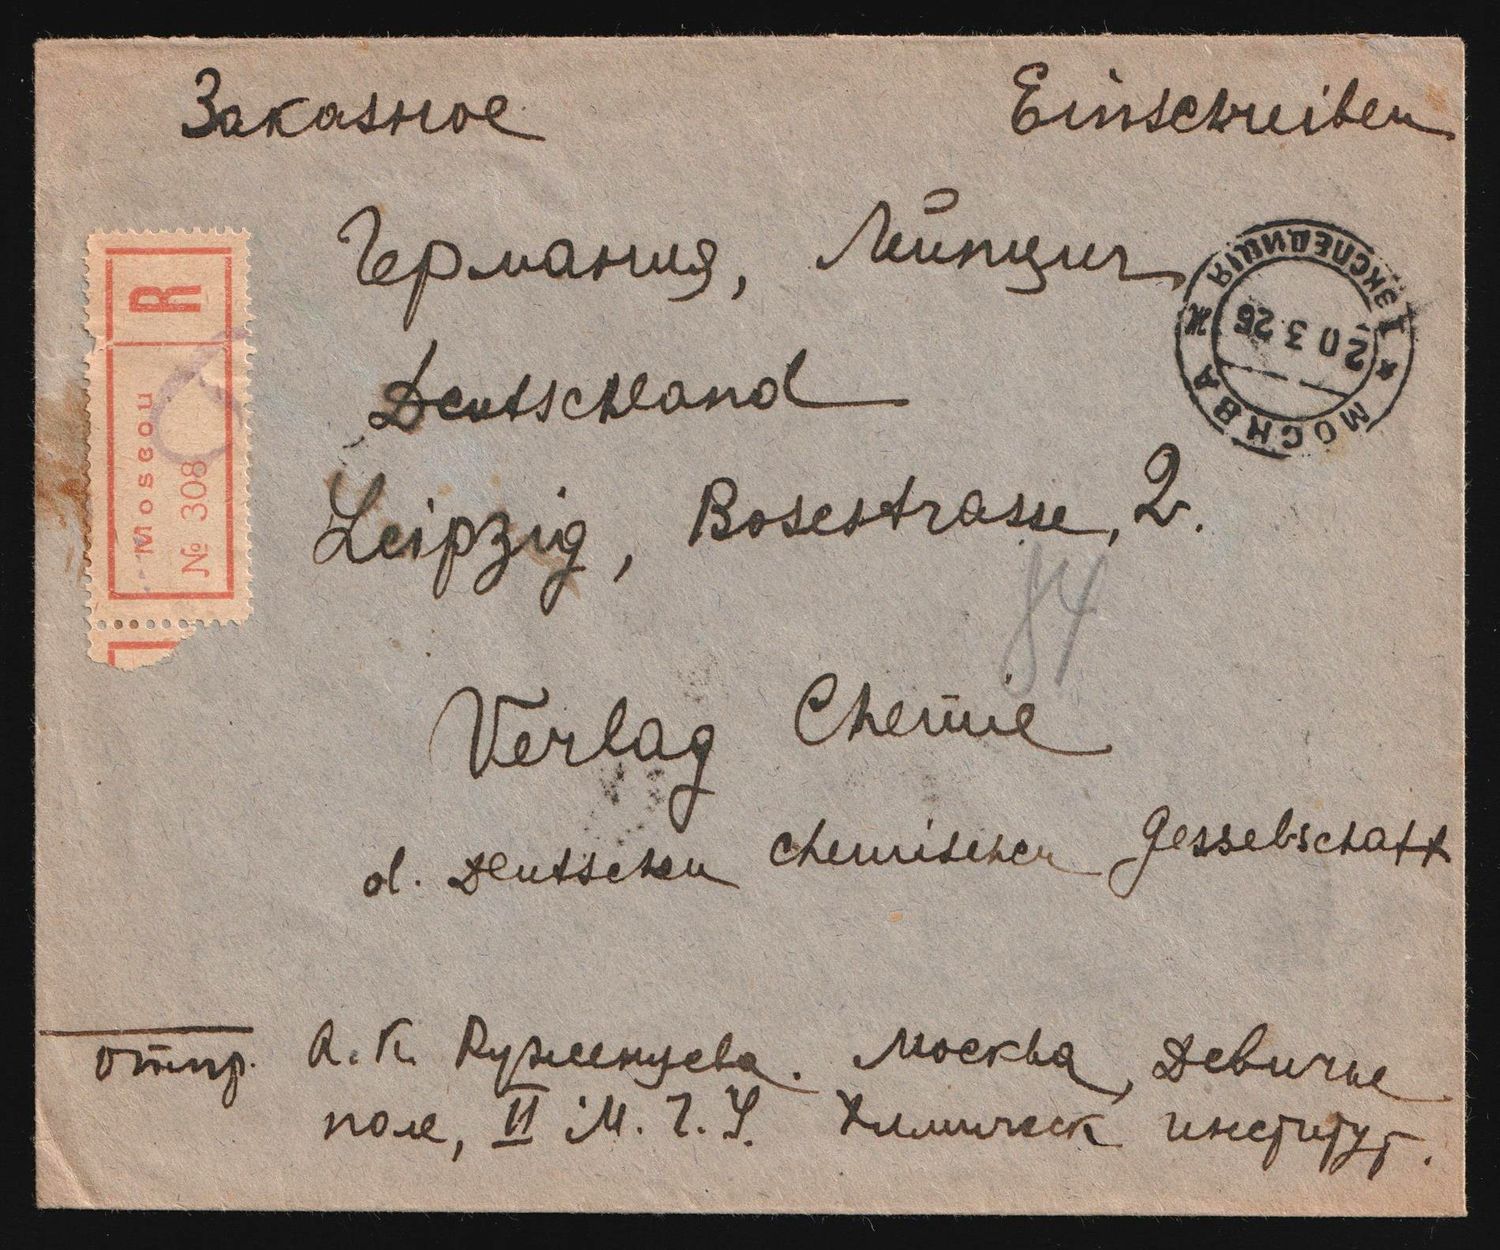 Заказное Einschreiben
Германия, Лейпциг
Deutschland
Leipzig, Bosestrasse, 2.
84
Verlag Chemie
d. Deutschen chemischen Gessebschaft
отпр. А. К. Руженцева. Москва, Девичье
поле, II М. Г. У. Химическ институт.
R
Moscou
№ 308
МОСКВА Ж
1 ЭКСПЕДИЦИЯ
20 3 26